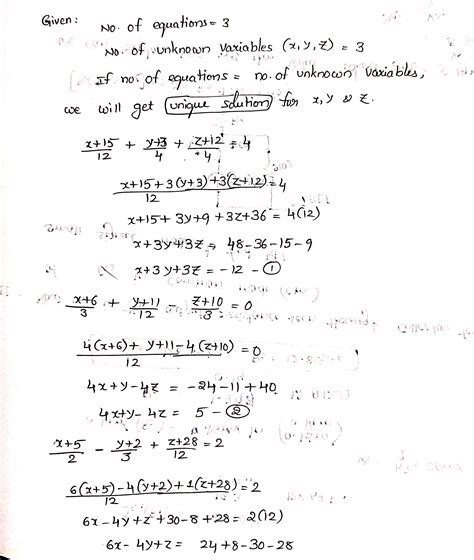 Given: No. of equations = 3
No. of unknown variables (x, y, z) = 3
If no. of equations = no. of unknown variables,
we will get unique solution for x, y & z.
(x+15)/12 + (y+3)/4 + (z+12)/4 = 4
(x+15+3(y+3)+3(z+12))/12 = 4
x+15+3y+9+3z+36 = 4(12)
x+3y+3z = 48-36-15-9
x+3y+3z = -12 - ①
(x+6)/3 + (y+11)/12 - (z+10)/3 = 0
(4(x+6)+ y+11-4(z+10))/12 = 0
4x+y-4z = -24-11+40
4x+y-4z = 5 - ②
(x+5)/2 - (y+2)/3 + (z+28)/12 = 2
(6(x+5)-4(y+2)+1(z+28))/12 = 2
6x-4y+z+30-8+28 = 2(12)
6x-4y+z = 24+8-30-28